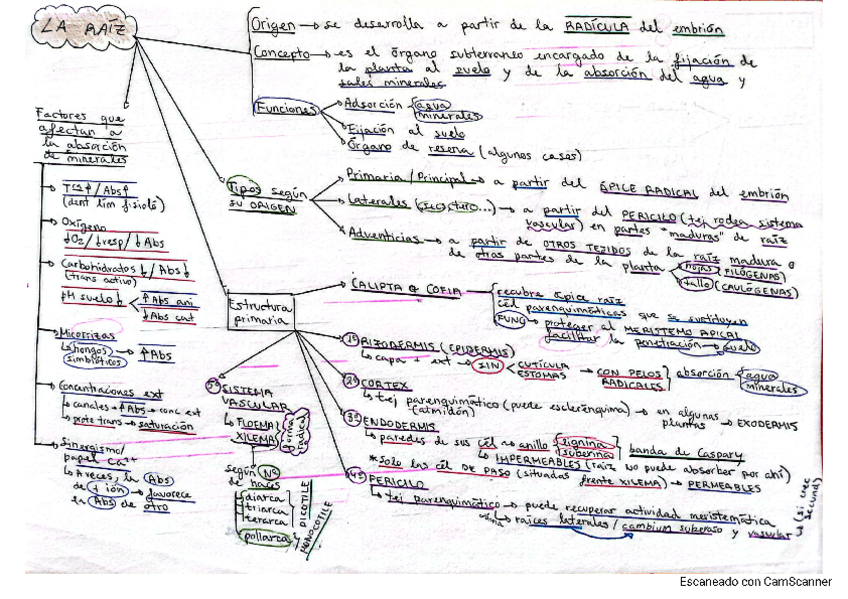 LA RAÍZ
Origen → se desarrolla a partir de la RADÍCULA del embrión
Concepto → es el órgano subterraneo encargado de la fijación de
la planta al suelo y de la absorción del agua y
sales minerales
Funciones
Adsorción agua
minerales
Fijación al suelo
Órgano de reserva (algunos casos)
Tipos según
su ORIGEN
Primaria / Principal → a partir del ÁPICE RADICAL del embrión
Laterales → a partir del PERICILO (tej rodea sistema
vascular) en partes "maduras" de raíz
Adventicias → a partir de OTROS TEJIDOS de la raíz madura o
de otras partes de la planta
hojas (FILÓGENAS)
tallo (CAULÓGENAS)
Factores que
afectan a
la absorción
de minerales
Tª↑ / Abs↑
(dent lim fisioló)
Oxígeno
↓O₂ / ↓resp / ↓Abs
Carbohidratos ↓ / Abs ↓
(trans activo)
pH suelo ↓
↑Abs ani
↓Abs cat
Micorrizas
↳ hongos simbióticos → ↑Abs
Concentraciones ext
↳ canales → ↑Abs → conc ext
↳ prote trans → saturación
Sinergismo /
papel Ca²⁺
↳ A veces, la Abs
de 1 ión → favorece
la Abs de otro
Estructura
primaria
CALIPTA o COFIA
recubre ápice raíz
cél parenquimáticas que se sustituyen
FUNC → proteger al MERISTEMO APICAL
facilitar la penetración → suelo
1º RIZODERMIS (EPIDERMIS)
↳ capa + ext → SIN
CUTÍCULA
ESTOMAS
→ CON PELOS
RADICALES
absorción agua
minerales
2º CORTEX
↳ tej parenquimático (puede esclerénquima) → en algunas
(almidón)
plantas → EXODERMIS
3º ENDODERMIS
↳ paredes de sus cél → anillo lignina
suberina
banda de Caspary
↳ IMPERMEABLES (raíz no puede absorber por ahí)
*Solo las cél DE PASO (situadas frente XILEMA) → PERMEABLES
4º PERICILO
↳ tej parenquimático → puede recuperar actividad meristemática
↳ raíces laterales / cambium suberoso y vascular
5º SISTEMA
VASCULAR
↳ FLOEMA
↳ XILEMA
forma
radical
según Nº
de haces
diarca
triarca
terarca
poliarca
DICOTILE
MONOCOTILE
Escaneado con CamScanner